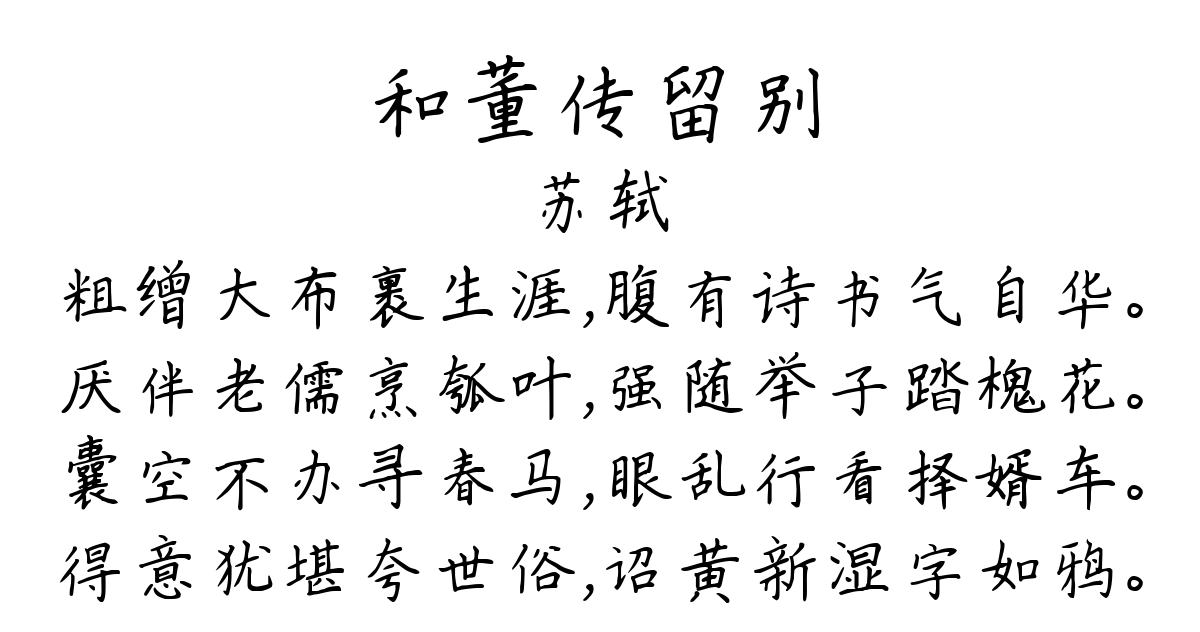 和董传留别
苏轼
粗缯大布裹生涯,腹有诗书气自华。
厌伴老儒烹瓠叶,强随举子踏槐花。
囊空不办寻春马,眼乱行看择婿车。
得意犹堪夸世俗,诏黄新湿字如鸦。